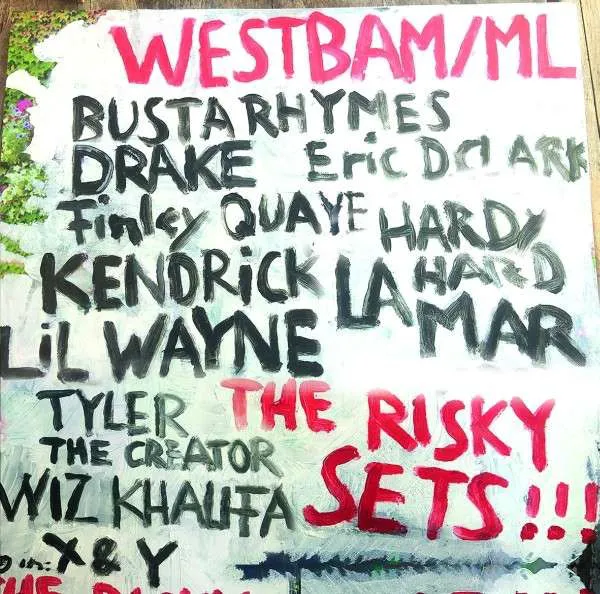 WESTBAM/ML
BUSTA RHYMES
DRAKE Eric D.ClARK
Finley QUAYE HARDY
HARD
KENDRiCK LAMAR
LiL WAYNE
TYLER THE RiSKY
THE CREATOR
SETS!!!
WIZ KHALIFA
X & Y
THE